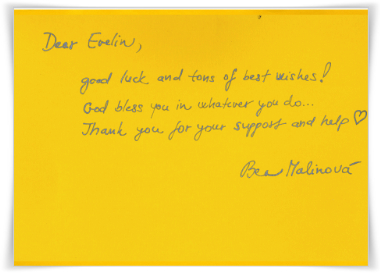 Dear Evelin,
good luck and tons of best wishes!
God bless you in whatever you do...
Thank you for your support and help ♡
Bea Malinová